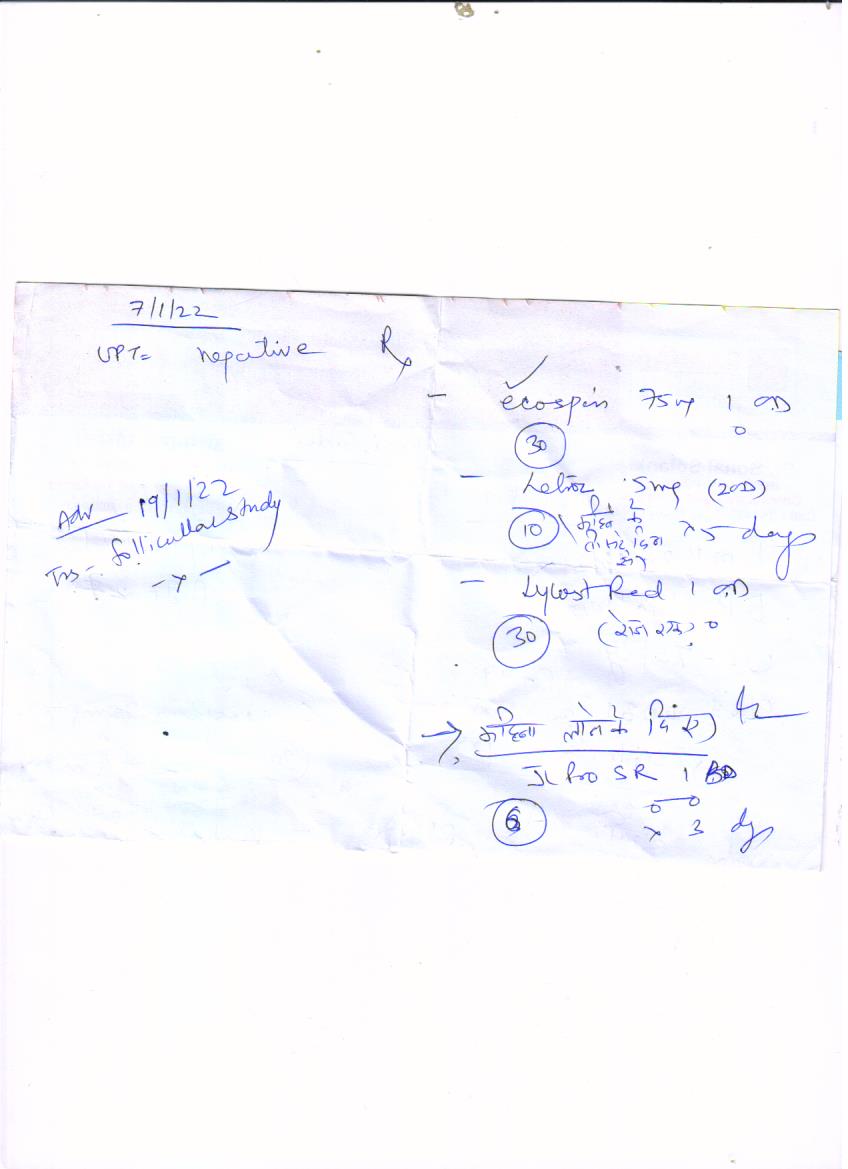 7/1/22
UPT= negative
Rx
- ecospin 75mg 1 OD
30
- Letroz 5mg (2OD)
10 x 5 days
- Lycost Red 1 OD
30 (रोज एक)
Adv 19/1/22
TVS - follicullar study
- x -
→ महिना लाने के लिए
JL Pro SR 1 BD
6
x 3 dys